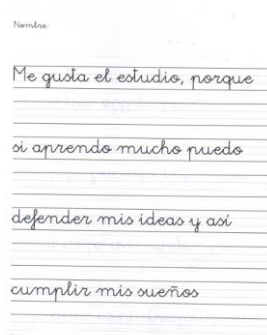 Nombre
Me gusta el estudio, porque
si aprendo mucho puedo
defender mis ideas y así
cumplir mis sueños